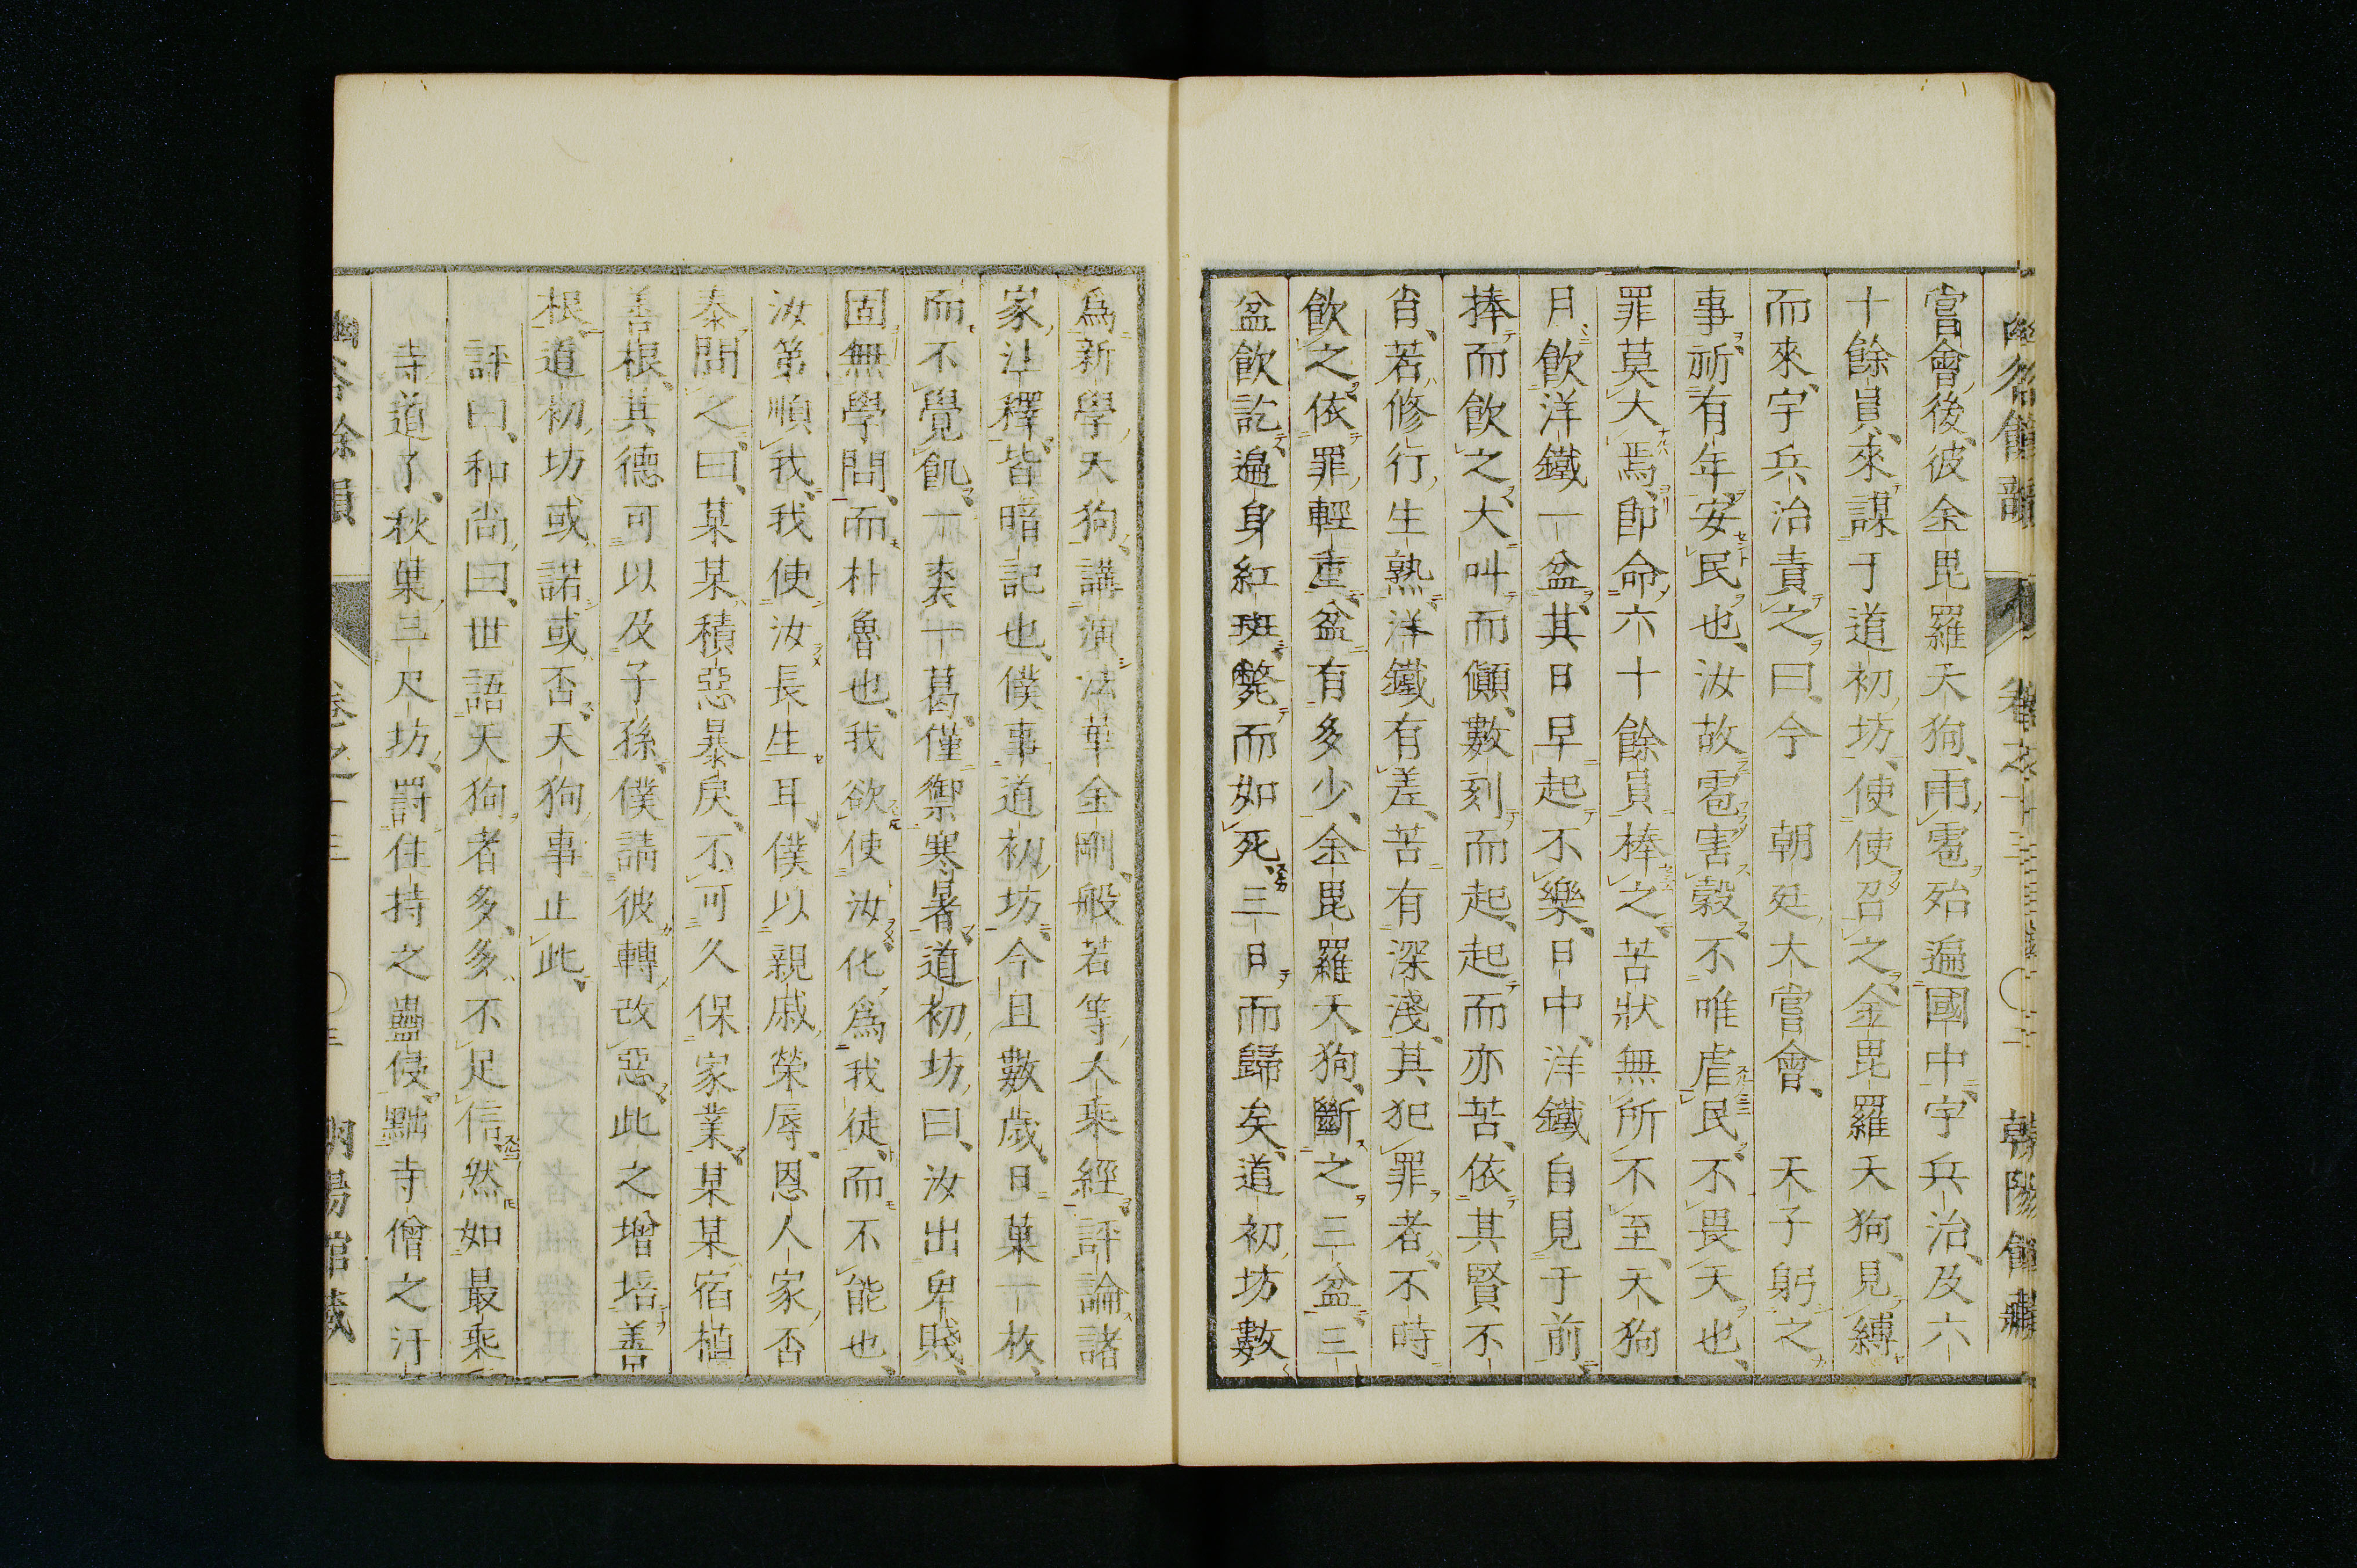 嘗會後、彼金毘羅天狗、雨雹殆遍國中、宇兵治、及六
十餘員、來謀于道初坊、使使召之、金毘羅天狗、見縛
而來、宇兵治責之曰、今　朝廷大嘗會、　天子躬之
事、祈有年、安民也、汝故雹害穀、不唯虐民、不畏天也、
罪莫大焉、即命六十餘員棒之、苦狀無所不至、天狗
月飲洋鐵一盆、其日早起不樂、日中、洋鐵自見于前、
捧而飲之、大叫而顚、數刻而起、起而亦苦、依其賢不
肖、若修行生熟、洋鐵有差、苦有深淺、其犯罪者、不時
飲之、依罪輕重、盆有多少、金毘羅天狗、斷之三盆、三
盆飲訖、遍身紅斑、斃而如死、三日而歸矣、道初坊數
爲新學天狗、講演法華金剛般若等大乘經、評論諸
家注釋、皆暗記也、僕事道初坊、今且數歲、日菓一枚、
而不覺飢、一裘一葛、僅禦寒暑、道初坊曰、汝出卑賤、
固無學問、而朴魯也、我欲使汝化爲我徒、而不能也、
汝第順我、我使汝長生耳、僕以親戚榮辱、恩人家否
泰問之、曰、某某積惡暴戾、不可久保家業、某某宿植
善根、其德可以及子孫、僕請彼轉改惡、此之增培善
根、道初坊或諾或否、天狗事止此、
評曰、和尚曰、世語天狗者多、多不足信、然如最乘
寺道了、秋葉三尺坊、罰住持之蠱侵、黜寺僧之汙
幽谷餘韻　卷之十三　〇三　朝陽館藏